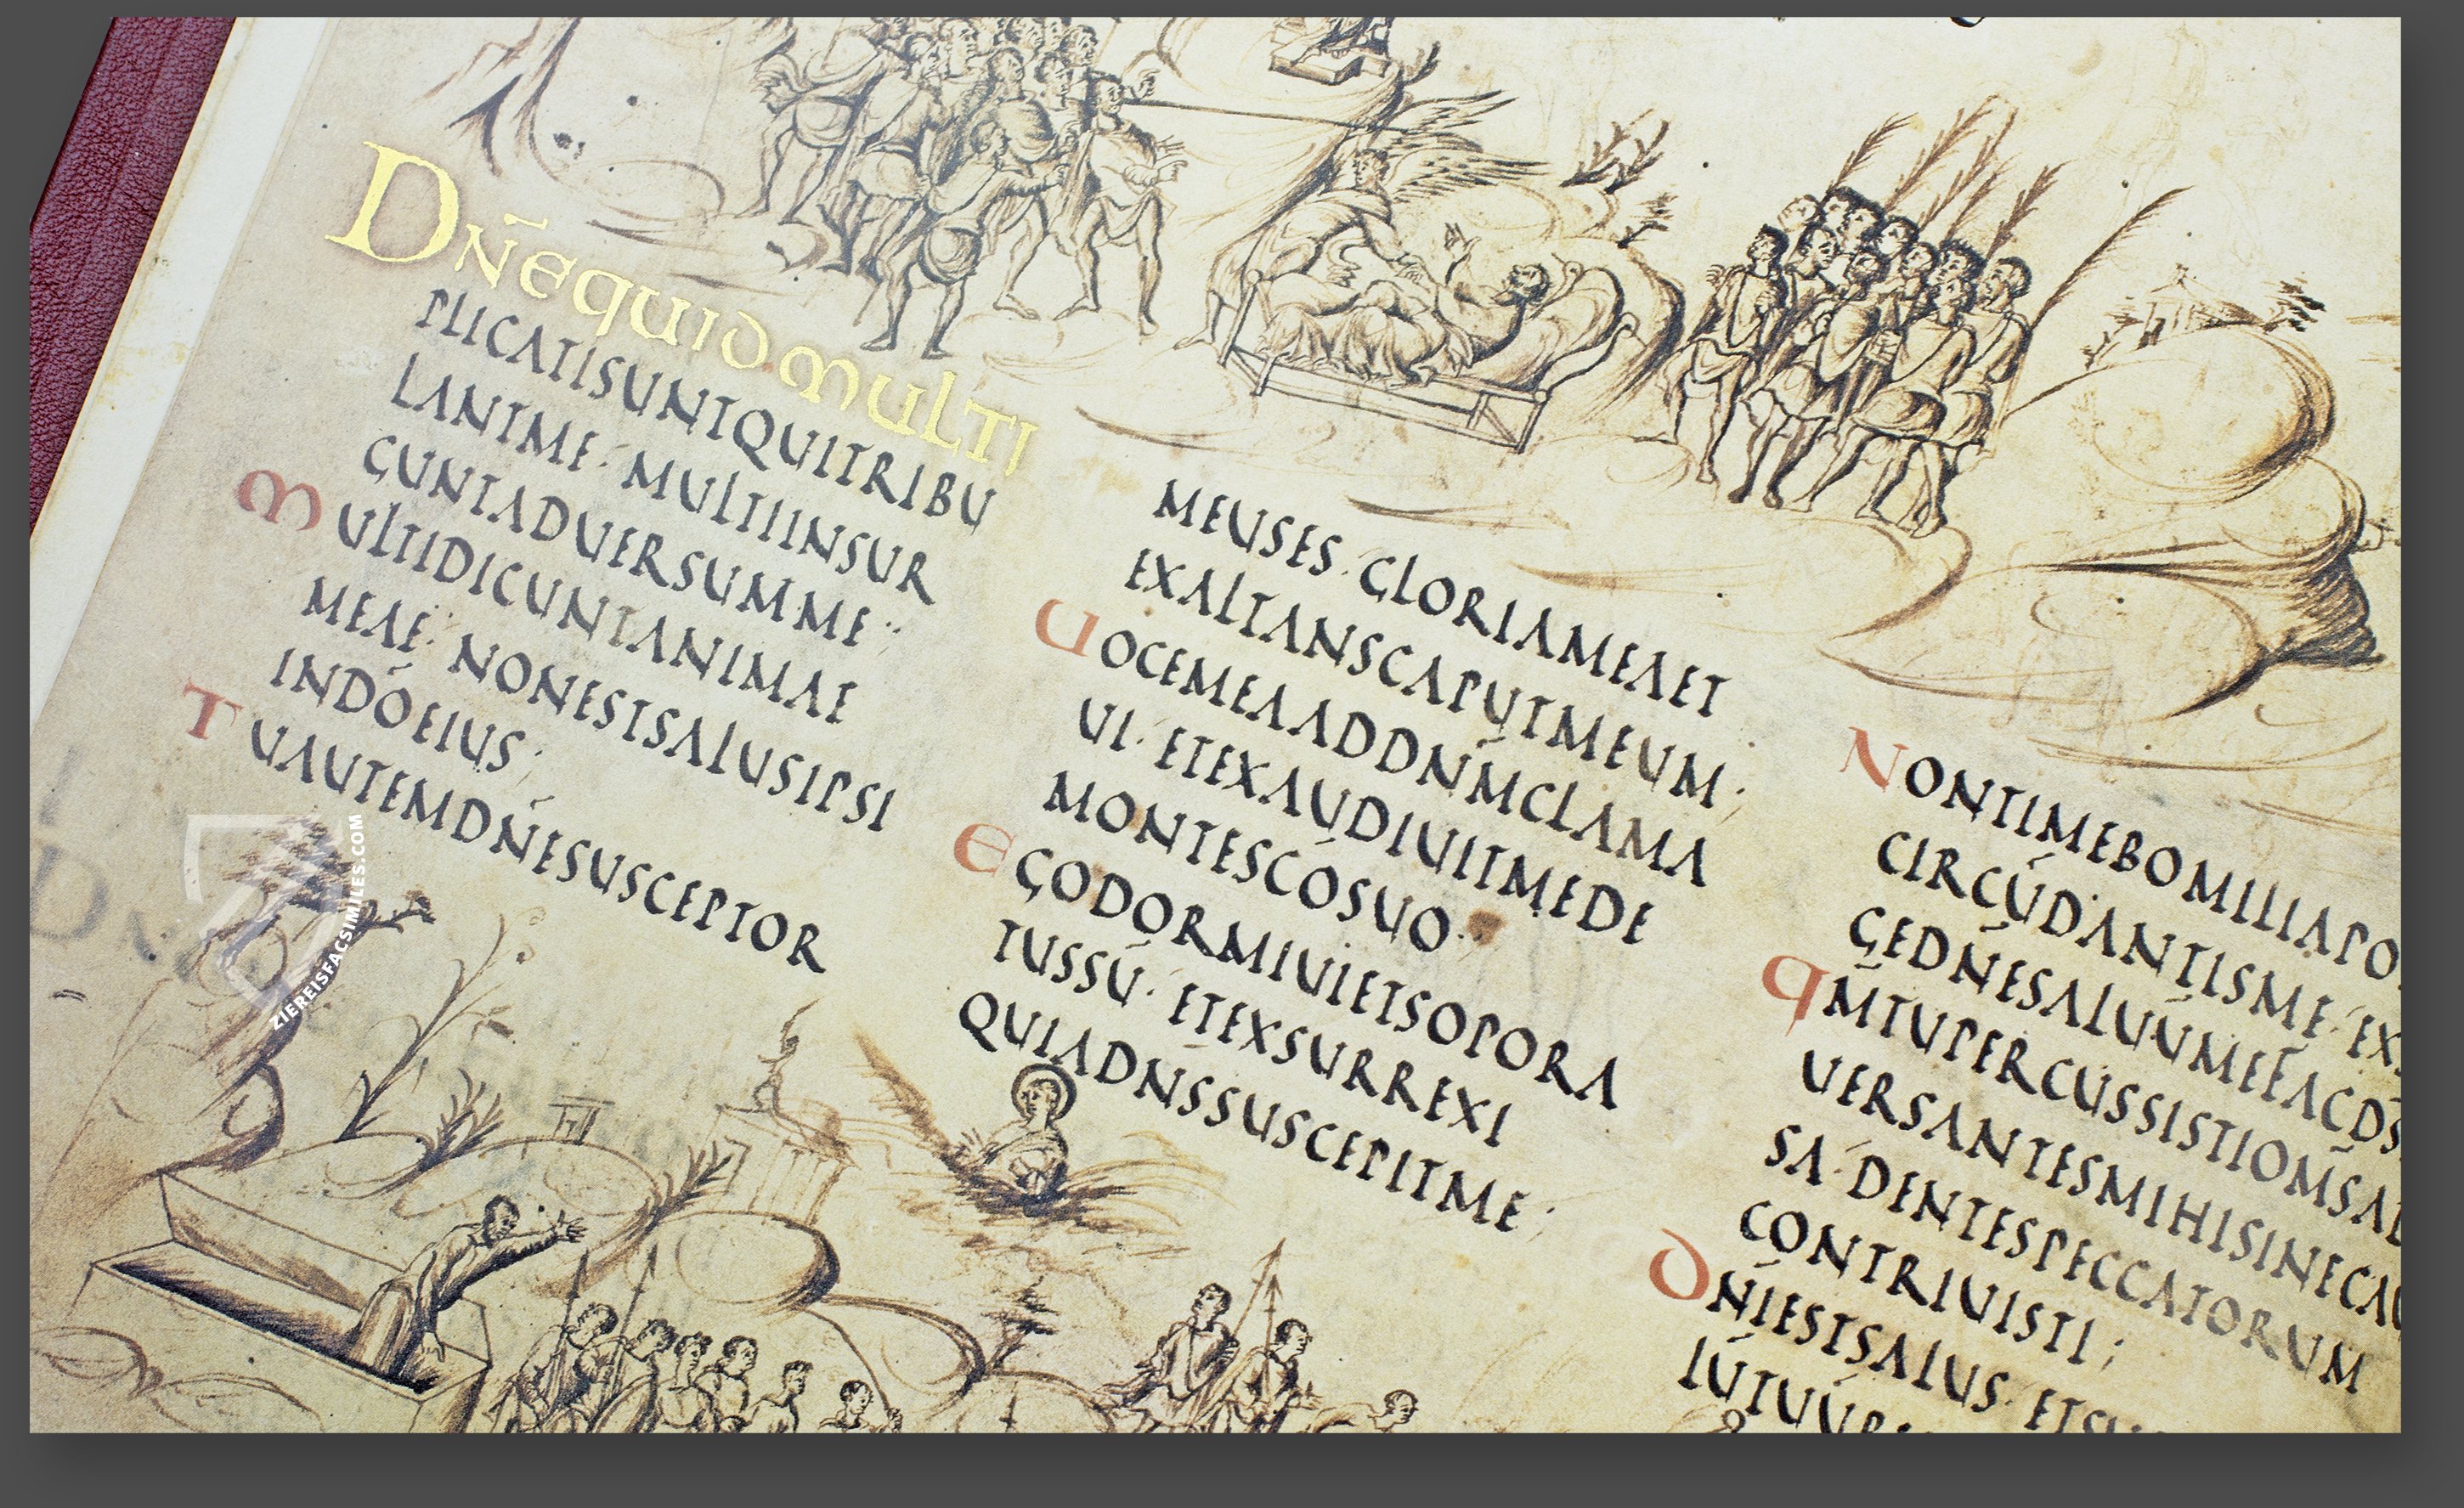 DN̄EQUIDMULTI
PLICATISUNTQUITRIBU
LANTME· MULTIINSUR
GUNTADUERSUMME·
MULTIDICUNTANIMAE
MEAE· NONESTSALUSIPSI
INDŌEIUS;
TUAUTEMDN̄ESUSCEPTOR
MEUSES· GLORIAMEAET
EXALTANSCAPUTMEUM;
UOCEMEAADDN̄MCLAMA
UI· ETEXAUDIUITMEDE
MONTESCŌSUO·
EGODORMIUIETSOPORA
TUSSŪ· ETEXSURREXI
QUIADN̄SSUSCEPITME;
NONTIMEBOMILIAPO
CIRCŪDANTISME· EX
GEDN̄ESALUŪMEFACDS̄
QM̄TUPERCUSSISTIOMS̄AD
UERSANTESMIHISINECAU
SA· DENTESPECCATORUM
CONTRIUISTI;
DN̄IESTSALUS· ET
ZIEREISFACSIMILES.COM